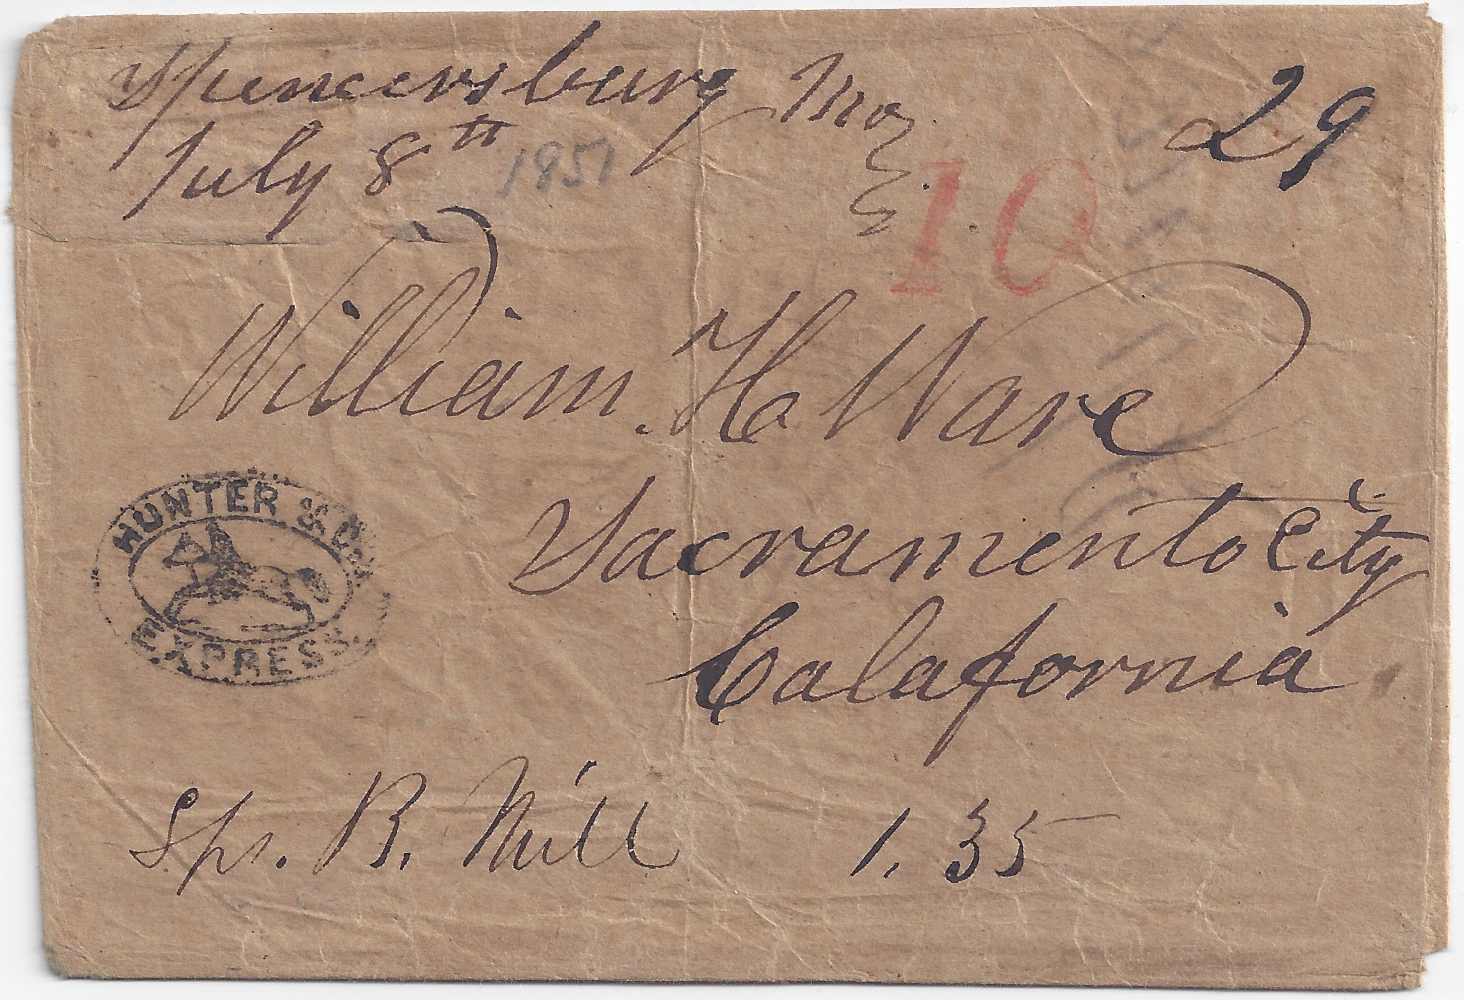 Spencersburg Mo 29
July 8th 1851
10
William. H. Ware
Sacramento City
Calafornia
HUNTER & Co.
EXPRESS.
Sps. B. Mill 1.35